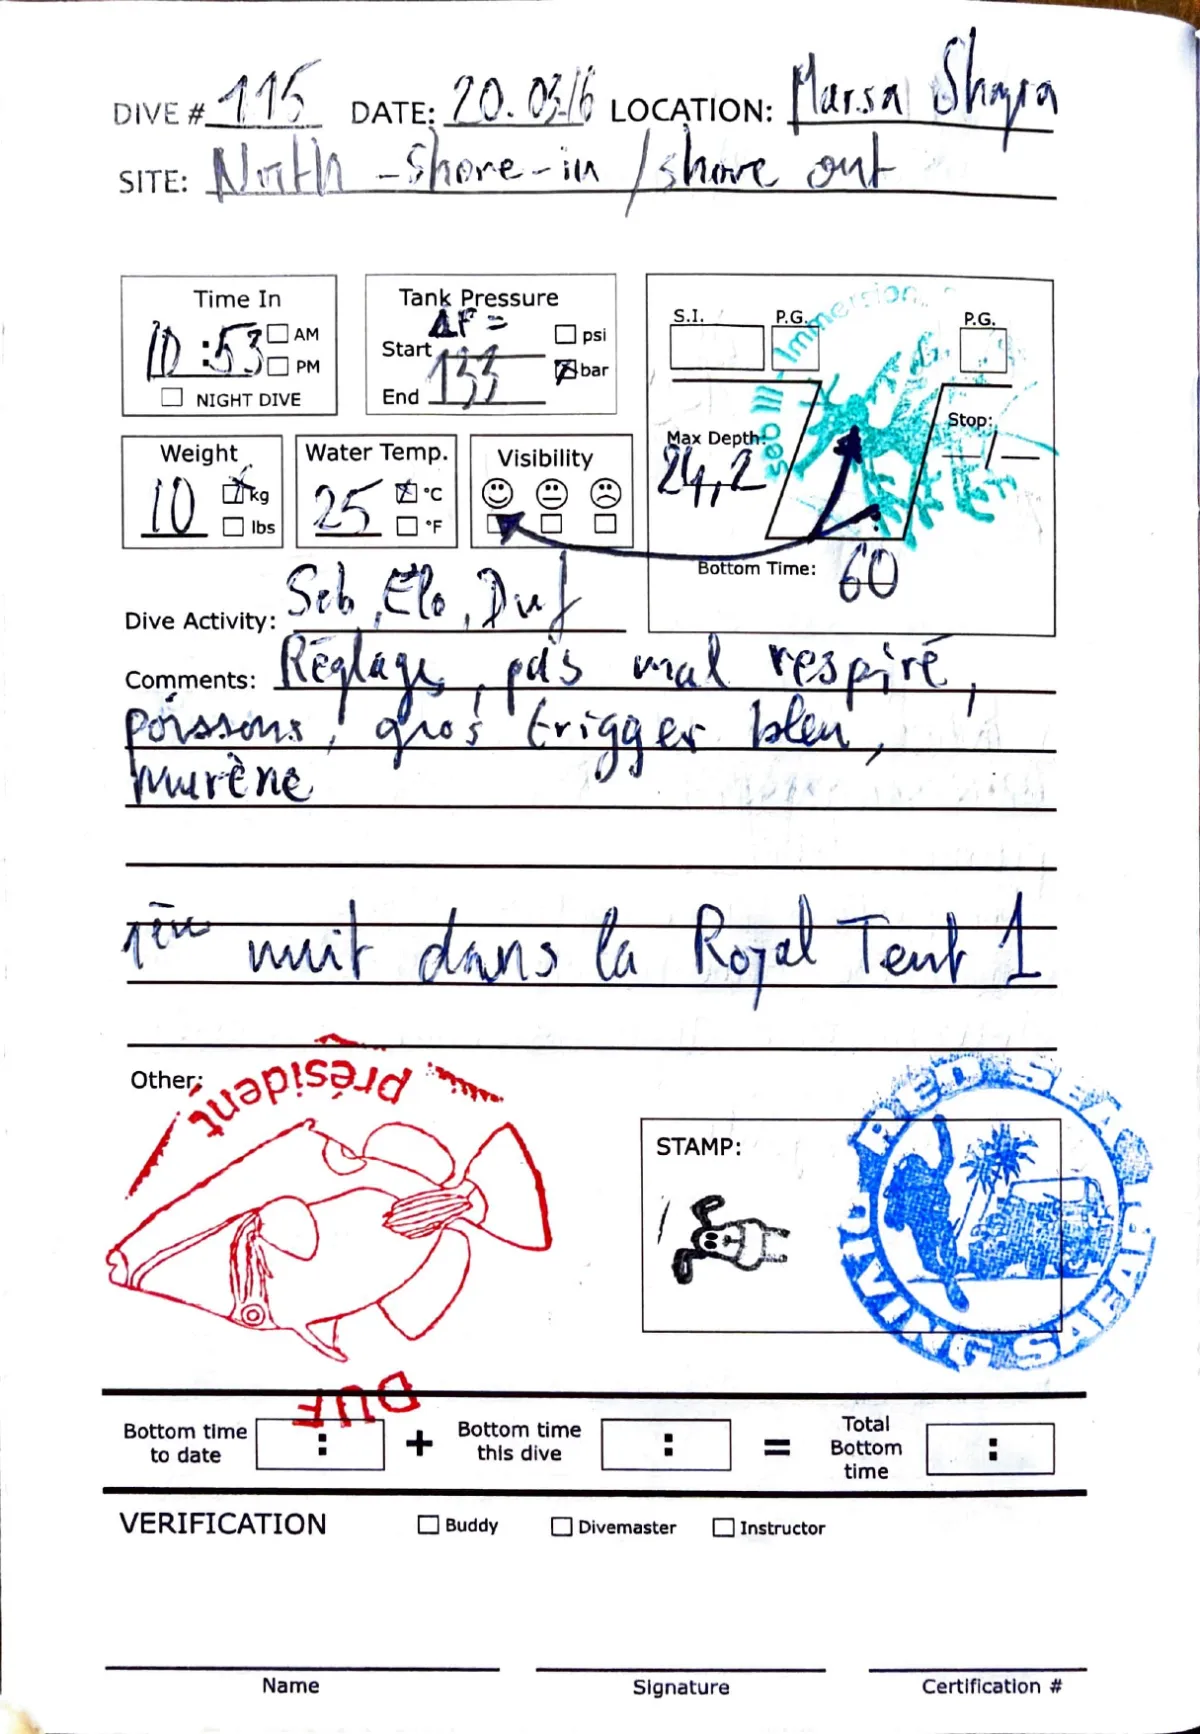 DIVE # 115 DATE: 20.03/6 LOCATION: Marsa Shagra
SITE: North - Shore-in / shore out
Time In
10 :53 AM
PM
NIGHT DIVE
Tank Pressure
ΔP =
psi
Start 133 bar
End
S.I. P.G. P.G.
seb III Immersion
Max Depth: Stop:
24,2
Bottom Time: 60
Weight
10 kg
lbs
Water Temp.
25 °C
°F
Visibility
Dive Activity: Seb, Elo, Duf
Comments: Réglage, pas mal respiré,
poissons, gros trigger bleu,
murène
1ère nuit dans la Royal Tent 1
Other:
président
DUF
STAMP:
RED SEA DIVING SAFARI
Bottom time to date : + Bottom time this dive : = Total Bottom time :
VERIFICATION Buddy Divemaster Instructor
Name Signature Certification #